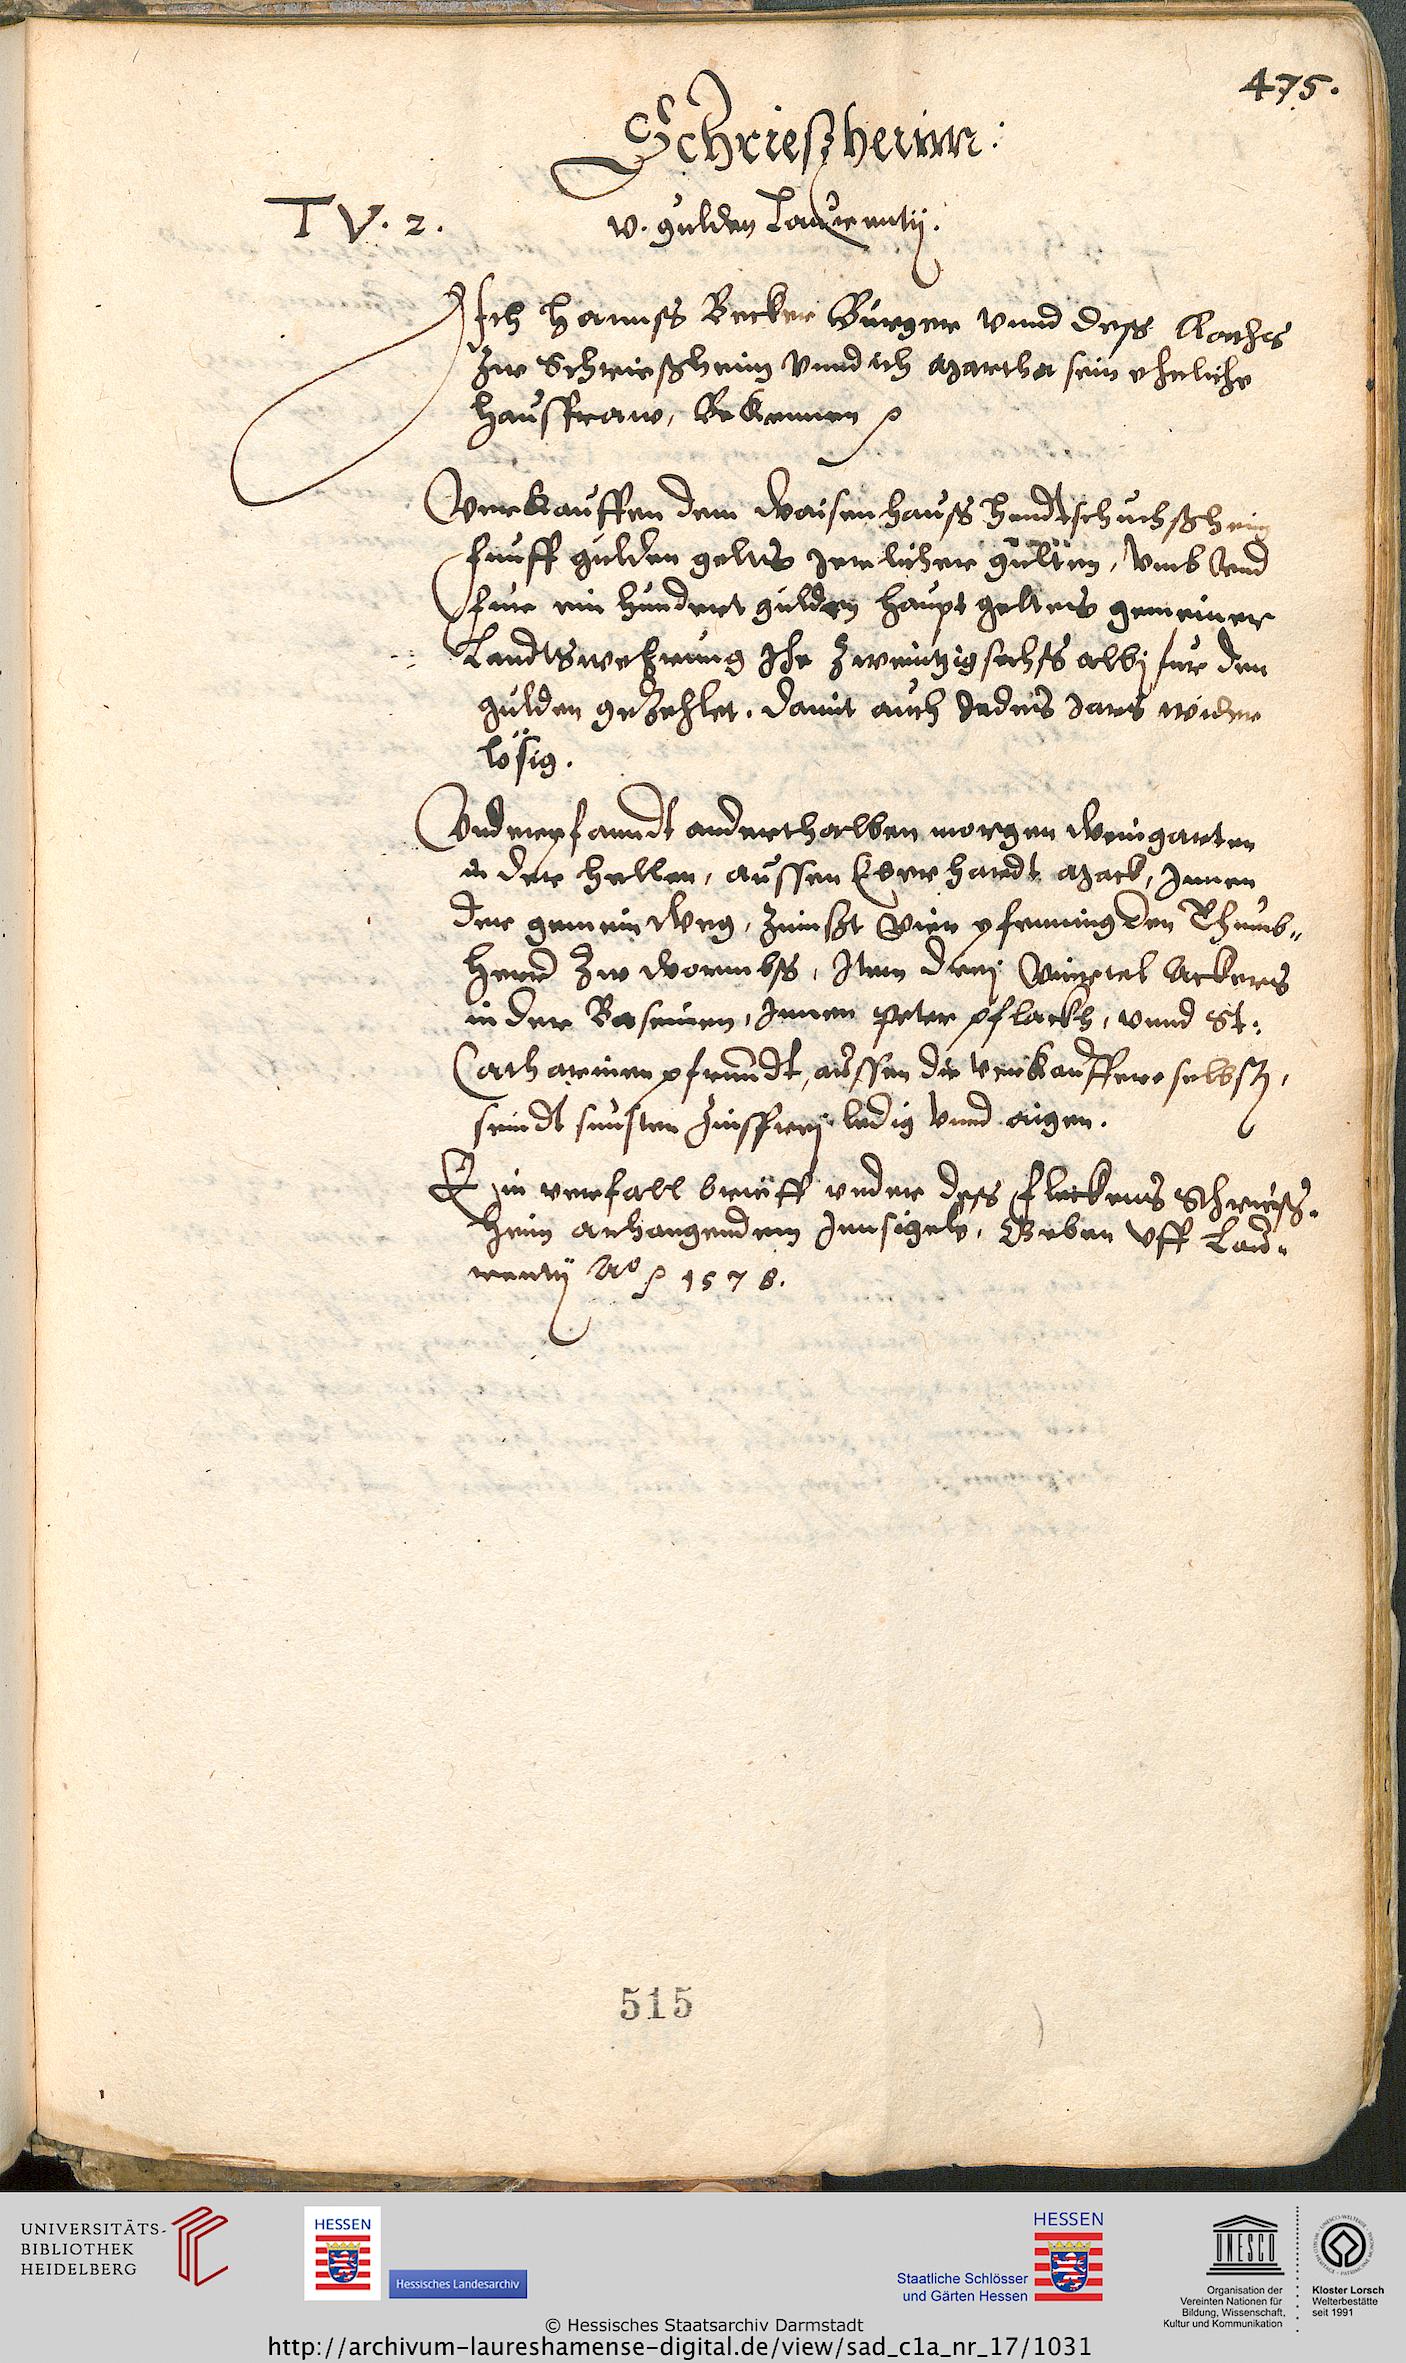 475.
Schrießheim:
T V. 2.
v. gulden Laurentij.
Ich Hannss Becker Burger vnnd dess Raths
Zw Schrießheim vnnd ich Martha sein eheliche
haussfraw, Bekennen
Verkauffen dem Waisenhauss Hendtschuchßheim
funff gulden gelts Jerlicher gülten, vmb vnd
fur ein hundert gulden haupt geltes gemeiner
Landtswehrung Jhe Zwentzig sechs albj fur den
gulden geZehlet. damit auch Jedes Jars wider
lösig.
Vnderpfanndt anderthalben morgen Weingarten
in der hellen, aussen Eberhardt Mack, Innen
der gemein Weg, Zinnßt vier pfenning den Thumb-
herrn Zw Wormbss, Item dreij Viertel Ackers
in der Baseinen, Innen Peter Pflackh, vnnd St.
Catharinen pfrundt, aussen die verkauffere selbst,
seindt sunsten Zinssfreij ledig vnnd aigen.
Ein verfall brieff vnder dess fleckens Schrieß-
heim anhangendem Innsigele, Geben vff Lau-
rentij Ao 1578.
515
UNIVERSITÄTS-
BIBLIOTHEK
HEIDELBERG
HESSEN
Hessisches Landesarchiv
HESSEN
Staatliche Schlösser
und Gärten Hessen
UNESCO
Organisation der
Vereinten Nationen für
Bildung, Wissenschaft,
Kultur und Kommunikation
Kloster Lorsch
Welterbestätte
seit 1991
© Hessisches Staatsarchiv Darmstadt
http://archivum-laureshamense-digital.de/view/sad_c1a_nr_17/1031